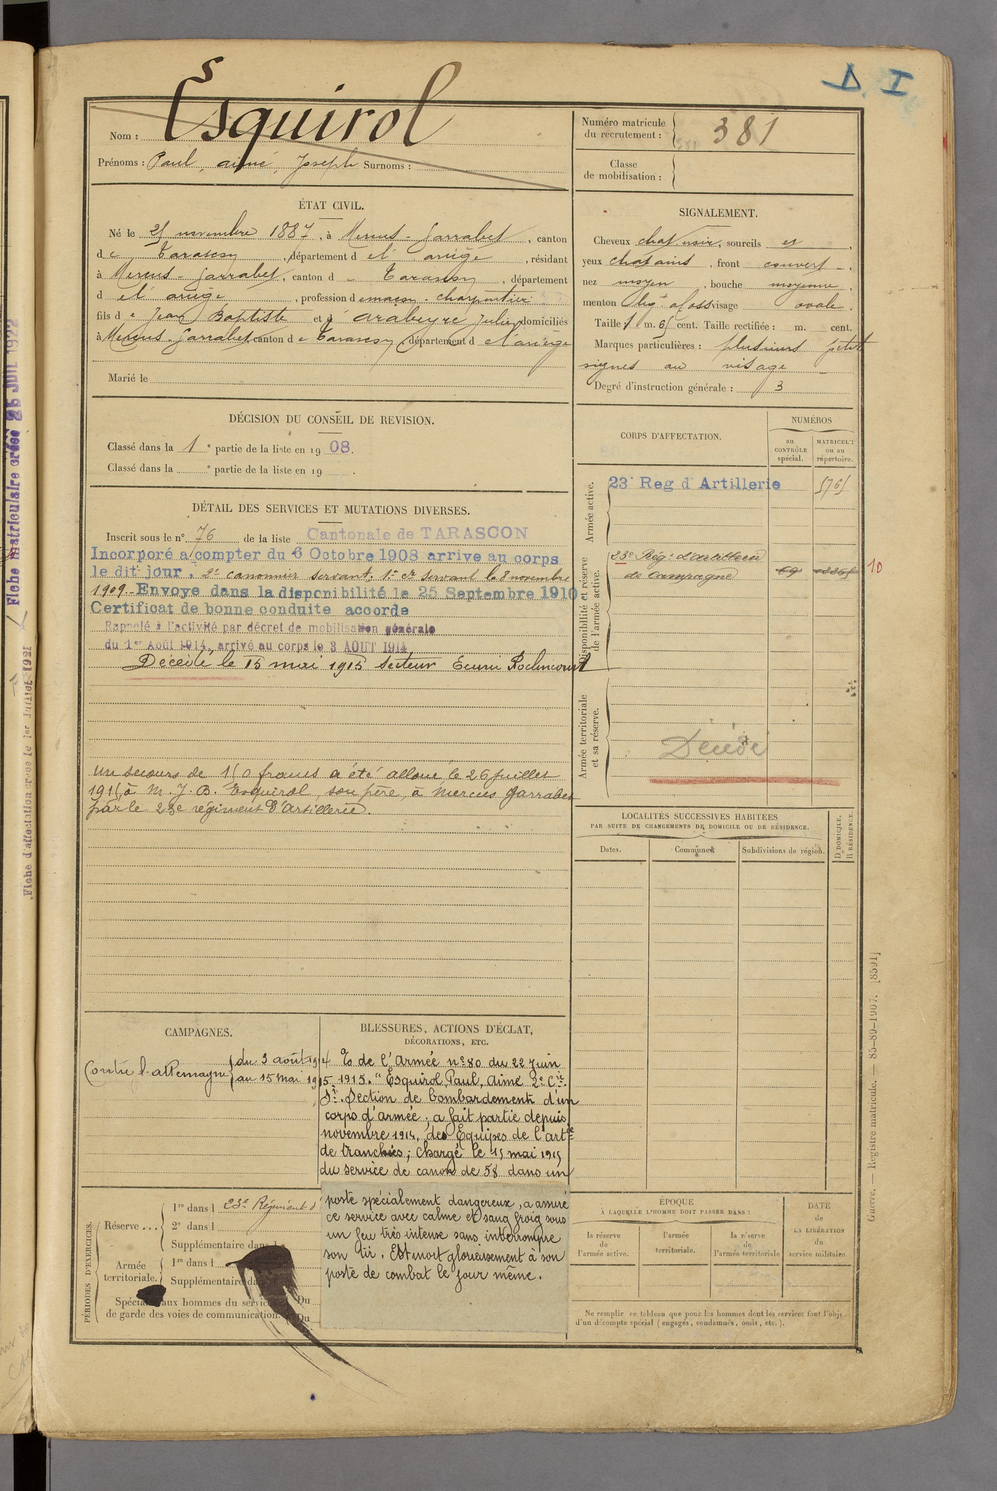 D. I
Esquirol
Nom :
Prénoms : Paul, aimé, Joseph Surnoms :
Numéro matricule du recrutement : 381
Classe de mobilisation :
ÉTAT CIVIL.
Né le 25 novembre 1887, à Mercus-Garrabet, canton
de Tarascon, département de l'ariège, résidant
à Mercus-Garrabet, canton d Tarascon, département
d el ariège, profession de maçon-charpentier
fils de Jean Baptiste et d' arabeyre Julie, domiciliés
à Mercus-Garrabet, canton de Tarascon, département d el'ariège
Marié le
SIGNALEMENT.
Cheveux chat noir, sourcils et,
yeux chatains, front couvert,
nez moyen, bouche moyenne,
menton visage ovale.
Taille 1 m. 65 cent. Taille rectifiée : m. cent.
Marques particulières : plusieurs petits
signes au visage
Degré d'instruction générale : 3
DÉCISION DU CONSEIL DE REVISION.
Classé dans la 1e partie de la liste en 1908.
Classé dans la e partie de la liste en 19 .
DÉTAIL DES SERVICES ET MUTATIONS DIVERSES.
Inscrit sous le n° 76 de la liste Cantonale de TARASCON
Incorporé a compter du 6 Octobre 1908 arrive au corps
le dit jour. 2e canonnier servant. 1er cr servant le 8 novembre
1909. Envoye dans la disponibilité le 25 Septembre 1910
Certificat de bonne conduite accorde
Rappelé à l'activité par décret de mobilisation générale
du 1er Août 1914, arrivé au corps le 3 AOUT 1914
Décédé le 15 mai 1915 secteur Ecurie Roclincourt
Un secours de 150 francs a été alloué le 26 juillet
1915 à M. J. B. Esquirol, son père, à Mercus Garrabet
par le 23e régiment d'Artillerie.
CORPS D'AFFECTATION.
NUMÉROS
au CONTRÔLE spécial.
MATRICULE ou au répertoire.
Armée active.
23e Reg d'Artillerie 5765
Disponibilité et réserve de l'armée active.
23e Rég. d'artillerie
de campagne
69
10
Armée territoriale et sa réserve.
Décédé
LOCALITÉS SUCCESSIVES HABITÉES
PAR SUITE DE CHANGEMENTS DE DOMICILE OU DE RÉSIDENCE.
Dates.
Communes.
Subdivisions de région.
D. DOMICILE.
R. RÉSIDENCE.
CAMPAGNES.
Contre l'allemagne
du 3 août 1914
au 15 mai 1915
BLESSURES, ACTIONS D'ÉCLAT,
DÉCORATIONS, ETC.
O de l'Armée n° 80 du 22 Juin
1915. "Esquirol, Paul, Aimé 2e Cr
St. Section de bombardement d'un
corps d'armée, a fait partie depuis
novembre 1914, des Equipes de l'artie
de tranchées; chargé le 15 mai 1915
du service de canon de 58 dans un
poste spécialement dangereux, a assuré
ce service avec calme et sang froid sous
un feu très intense sans interrompre
son tir. Est mort glorieusement à son
poste de combat le jour même.
PÉRIODES D'EXERCICES.
Réserve ...
1re dans l 23e Régiment d'
2e dans l
Supplémentaire dans
Armée territoriale.
1re dans l
Supplémentaire da
Spécial aux hommes du service
de garde des voies de communication.
Du
Du
ÉPOQUE
À LAQUELLE L'HOMME DOIT PASSER DANS :
la réserve de l'armée active.
l'armée territoriale.
la réserve de l'armée territoriale
DATE de LA LIBÉRATION du service militaire.
Ne remplir ce tableau que pour les hommes dont les services font l'objet
d'un décompte spécial (engagés, condamnés, omis, etc.).
Guerre. — Registre matricule. — 85-89-1907. [8391]
Fiche matriculaire créée 25 JUIL 1922
Fiche d'affectation créée le 1er Juillet 1921